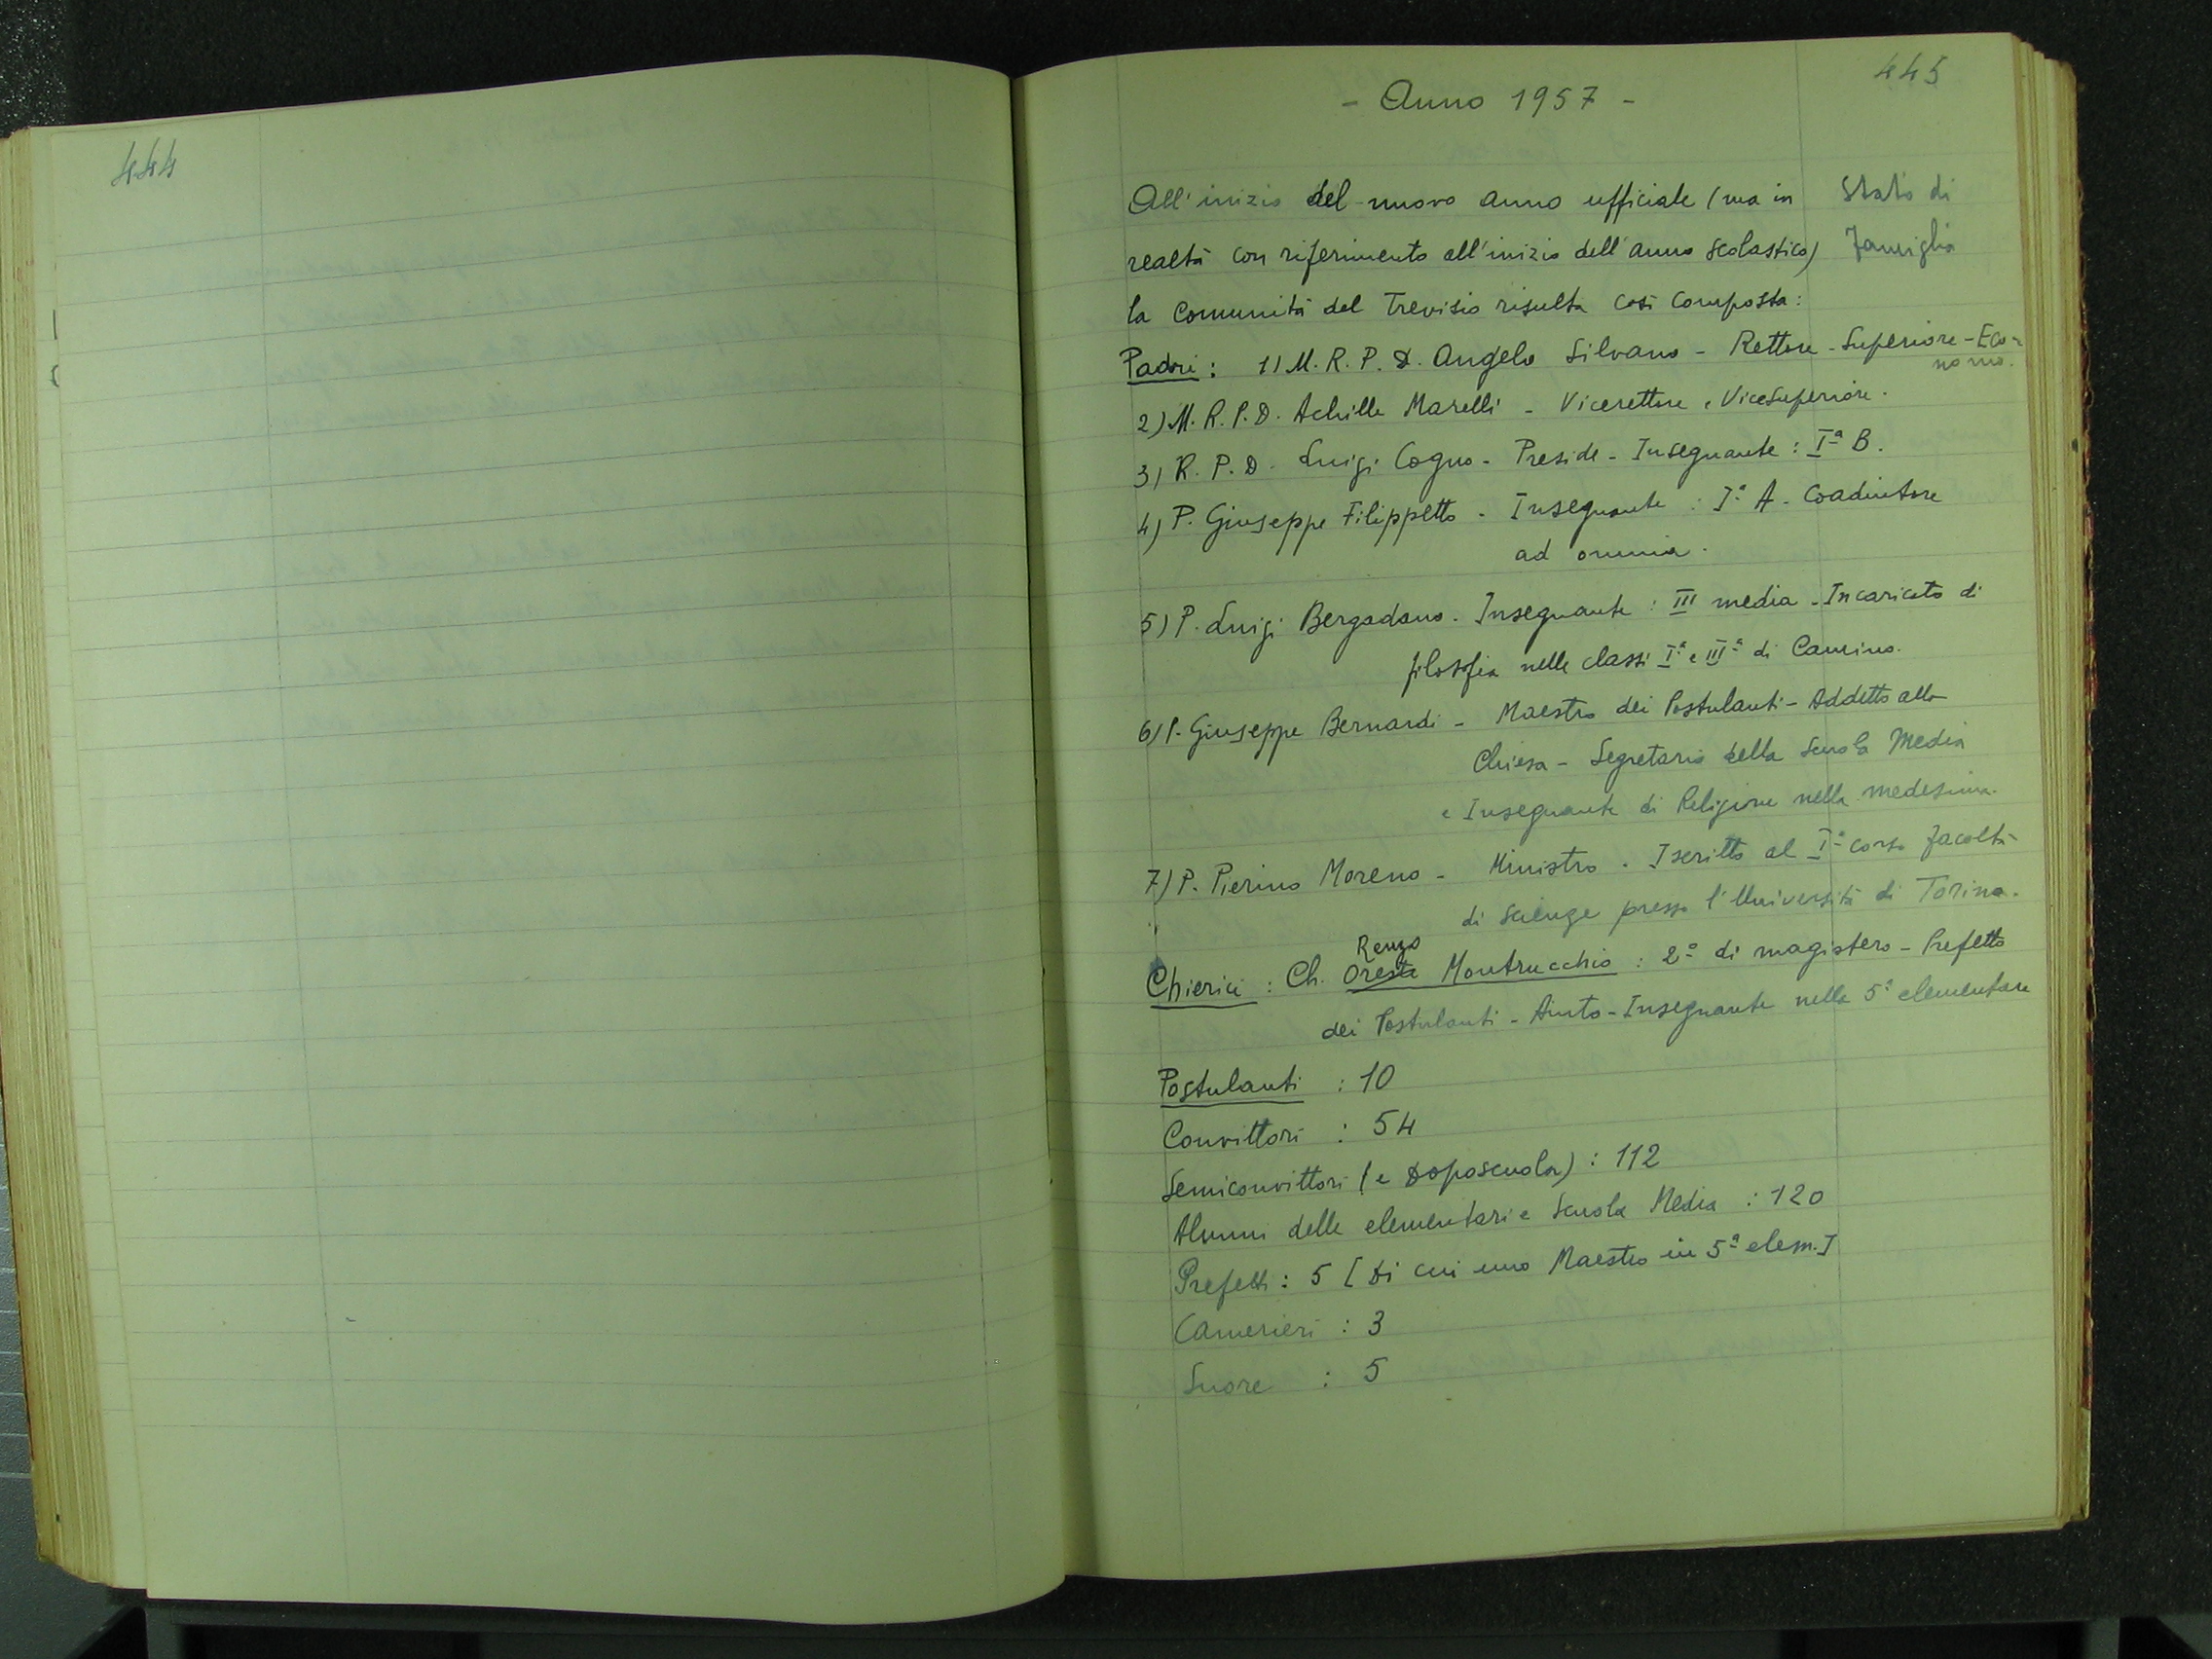 444
445
- Anno 1957 -
All'inizio del nuovo anno ufficiale (ma in
Stato di
realtà con riferimento all'inizio dell'anno scolastico)
Famiglia
la Comunità del Trevisio risulta così composta:
Padri : 1) M. R. P. D. Angelo Silvano - Rettore - Superiore - Eco=
nomo.
2) M. R. P. D. Achille Marelli - Vicerettore, Vicesuperiore.
3) R. P. D. Luigi Cogno - Preside - Insegnante : Iª B.
4) P. Giuseppe Filippetto - Insegnante : Iª A - Coadiutore
ad omnia.
5) P. Luigi Bergadano. Insegnante : III media - Incaricato di
filosofia nelle classi Iª e IIIª di Camino.
6) P. Giuseppe Bernardi - Maestro dei Postulanti - Addetto alla
Chiesa - Segretario della Scuola Media
e Insegnante di Religione nella medesima.
7) P. Pierino Moreno - Ministro - Iscritto al Iº corso Facoltà
di Scienze presso l'Università di Torino.
Renzo
Chierici : Ch. Oreste Montrucchio : 2º di magistero - Prefetto
dei Postulanti - Aiuto-Insegnante nella 5ª elementare
Postulanti : 10
Convittori : 54
Semiconvittori (e Doposcuola) : 112
Alunni delle elementari e Scuola Media : 120
Prefetti : 5 [Di cui uno Maestro in 5ª elem.]
Camerieri : 3
Suore : 5